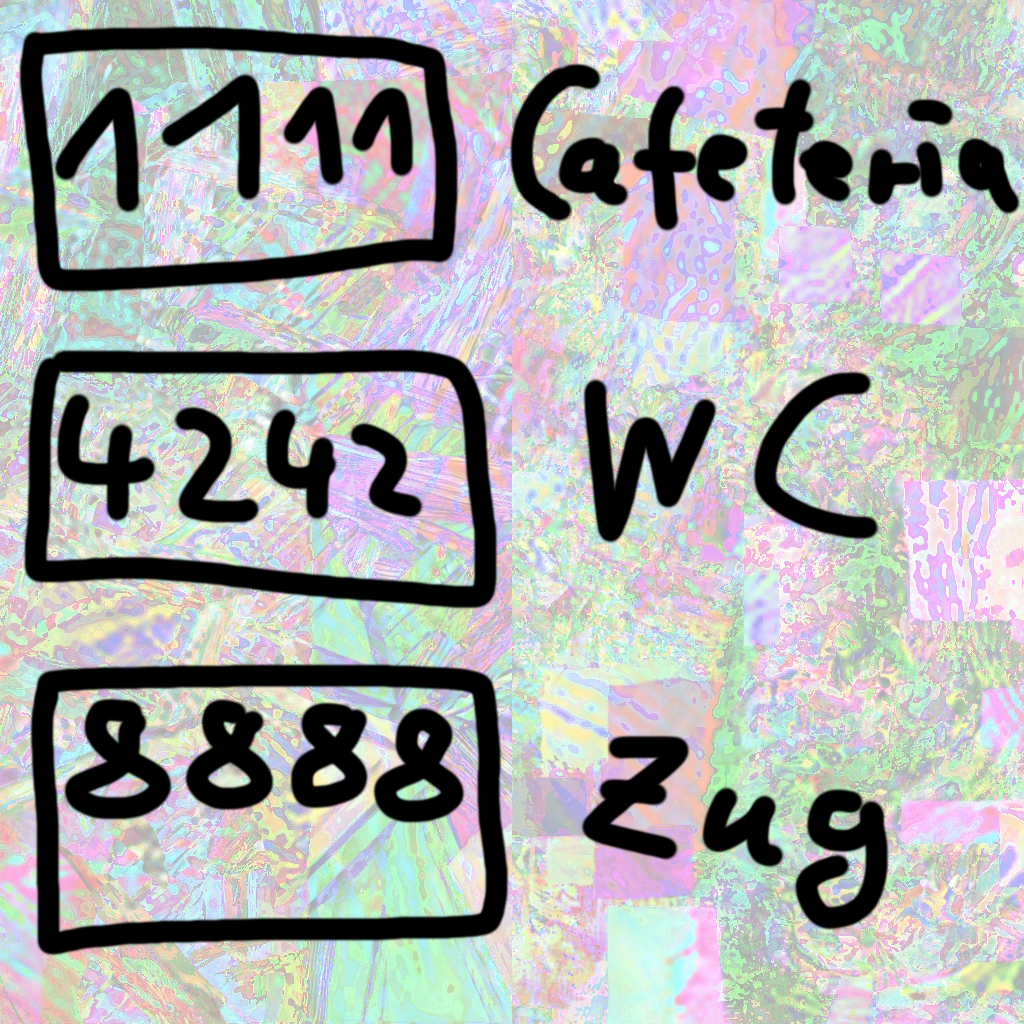 1111 Cafeteria
4242 WC
8888 Zug